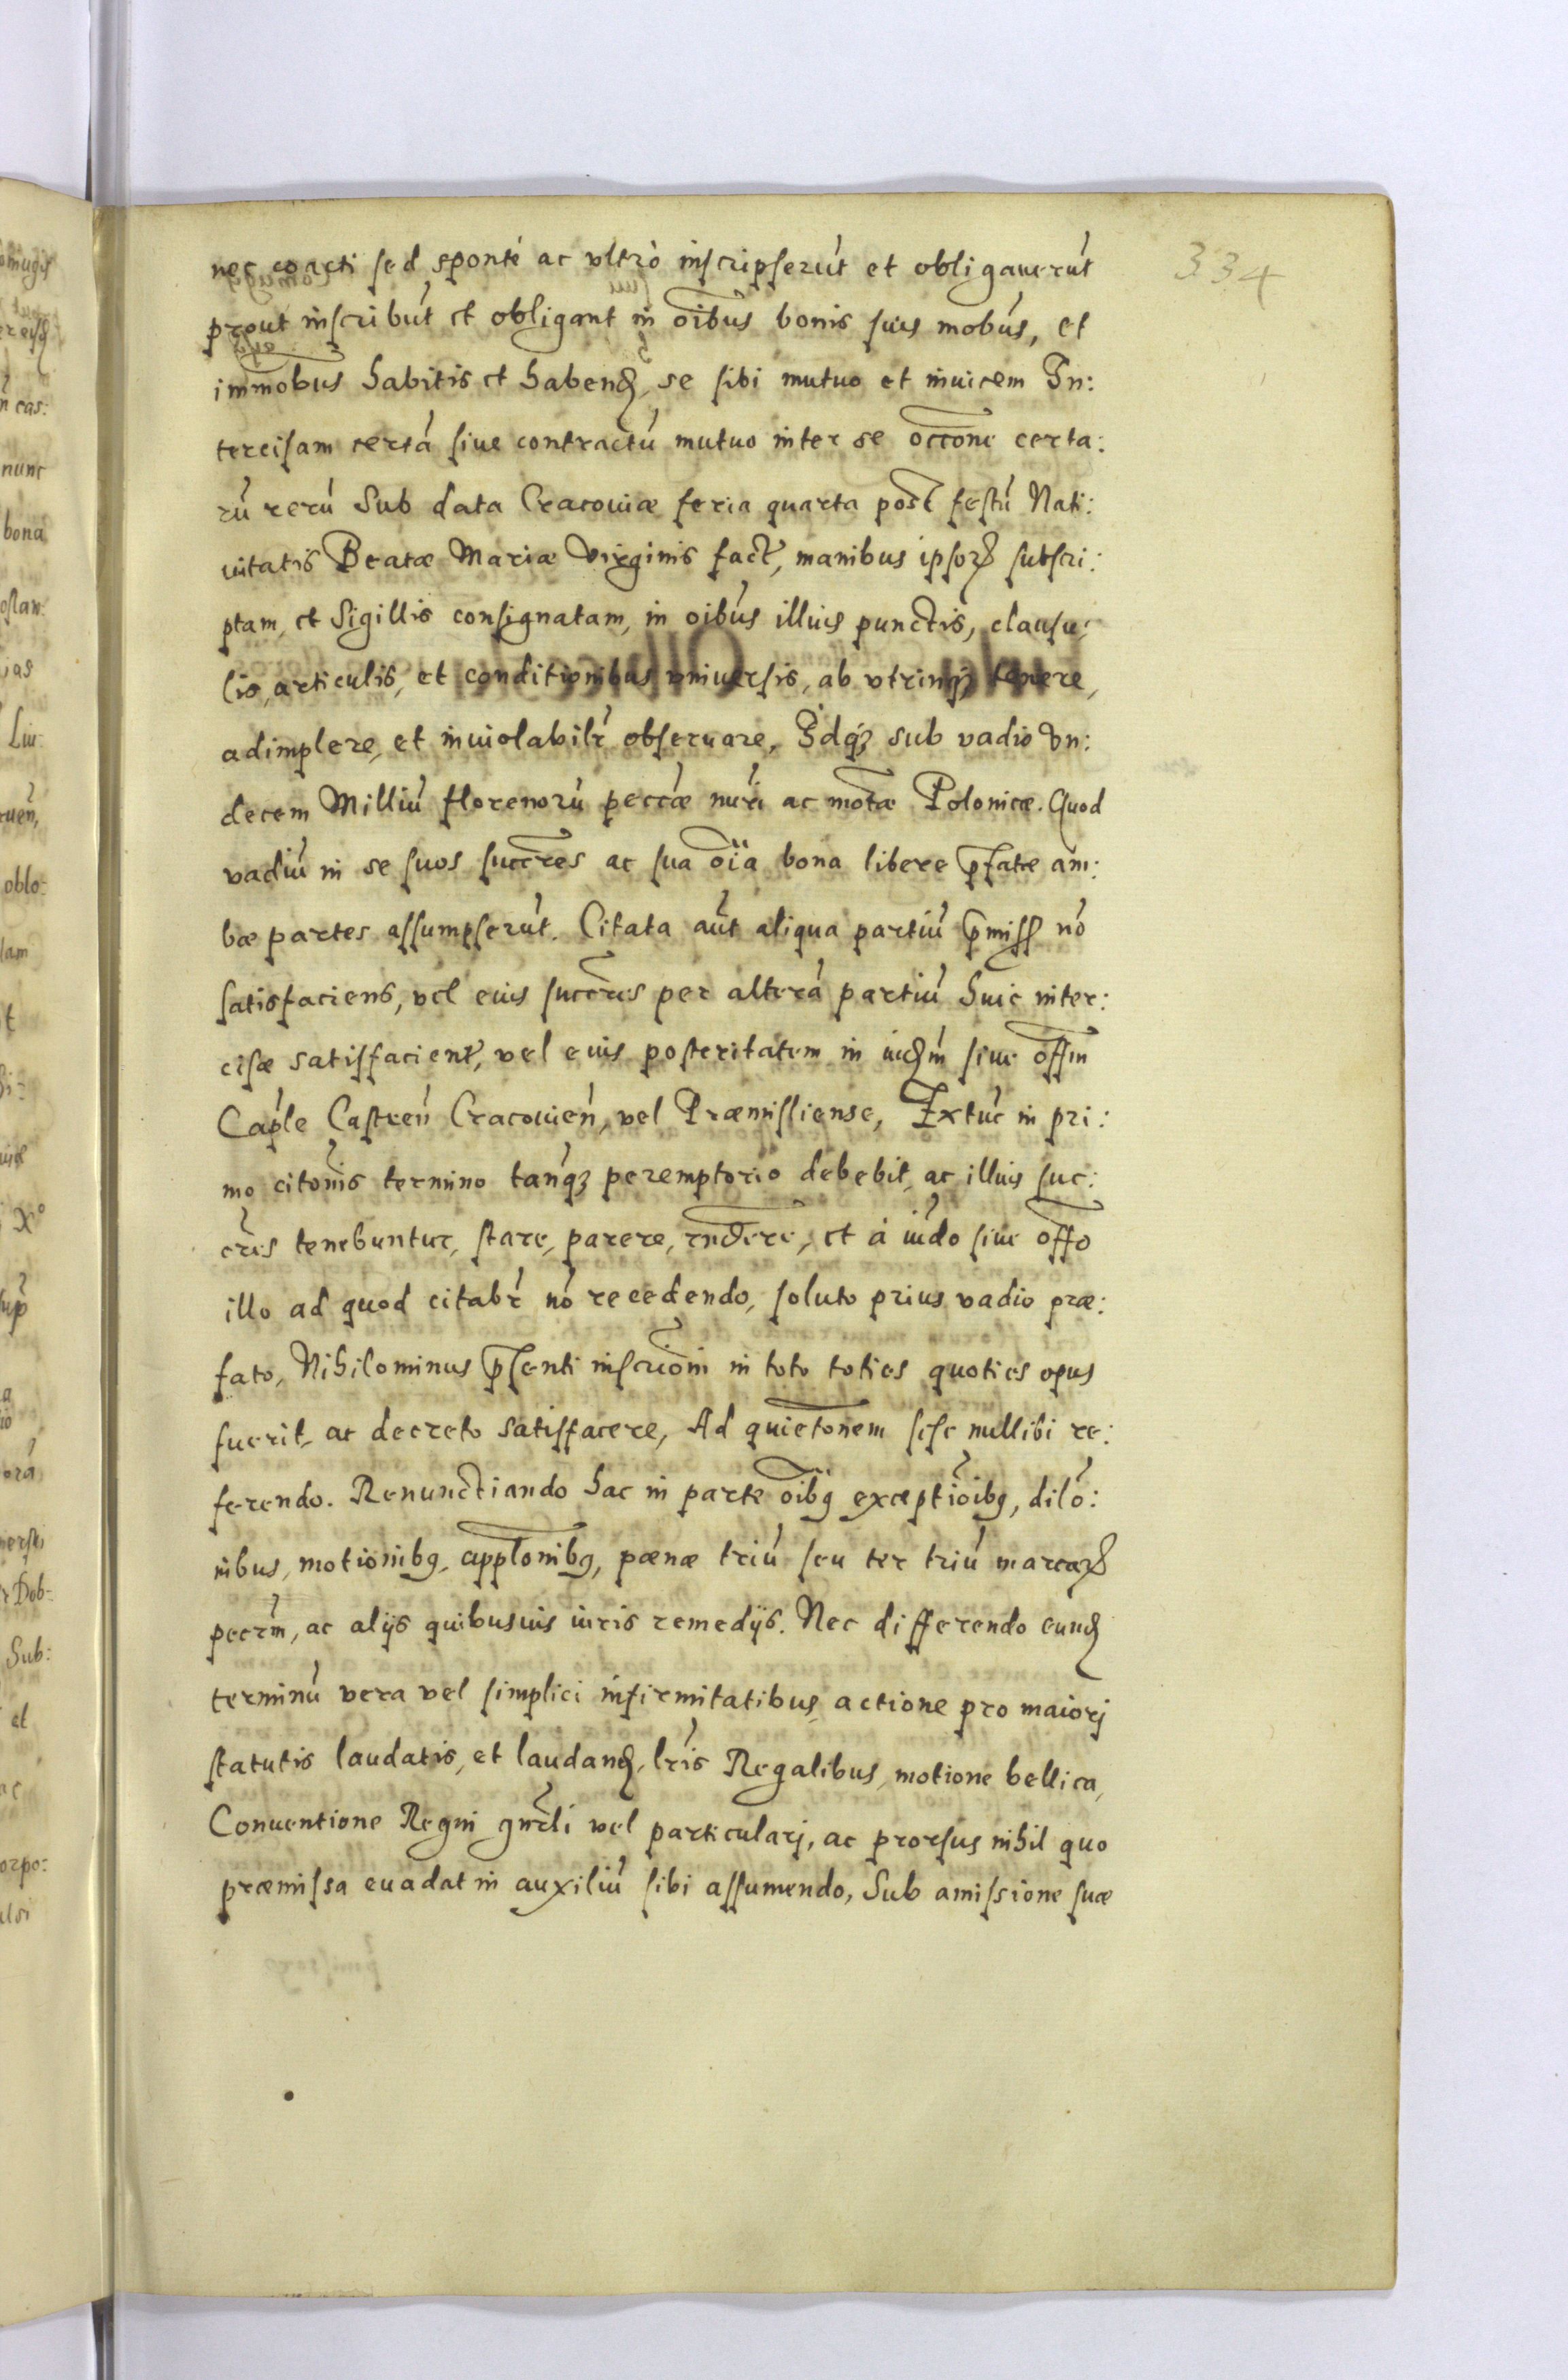 334
nec coacti sed sponté ac vltrò inscripserút et obligauerút
prout inscribút et obligant in oibus bonis suis mobus, et
immobus habitis et habend, se sibi mutuo et inuicem In:
tercisam certá siue contractú mutuo inter se occone certa:
rú rerú Sub data Cracouiæ feria quarta post festú Nati:
uitatis Beatæ Mariæ Virginis fact, manibus ipsor subscri:
ptam, et Sigillis consignatam, in oibus illius punctis, clausu:
lis, articulis, et conditionibus vniuersis, ab vtrinqz tenere,
adimplere, et inuiolabilr obseruare, Idqz sub vadio vn:
decem Milliú florenorú peccæ nuri ac motæ Polonicæ. Quod
vadiú in se suos succres ac sua oia bona libere pfatæ am:
bæ partes assumpserút. Citata aút aliqua partiú pmiss nó
satisfaciens, vel eius succres per alterá partiú huic inter:
cisæ satisfacient, vel eius posteritatem in iudm siue offm
Caple Castren Cracouien, vel Præmisliense, Extúc in pri:
mo citonis termino tanqz peremptorio debebit, ac illius suc:
cres tenebuntur, stare, parere, rndere, et á iudo siue offo
illo ad quod citabr nó recedendo, soluto prius vadio præ:
fato, Nihilominus psenti inscrioni in toto toties quoties opus
fuerit, ac decreto satisfacere, Ad quietonem sese nullibi re:
ferendo. Renunctiando hac in parte oibq exceptioibq, dilo:
nibus, motionibq, applonibq, pænæ triú seu ter triú marcar
pecrm, ac alijs quibusuis iuris remedijs. Nec differendo eund
terminú vera vel simplici infirmitatibus, actione pro maiorj
statutis laudatis, et laudand, lris Regalibus, motione bellica,
Conuentione Regni gnrli vel particularj, ac prorsus nihil quo
præmissa euadat in auxiliú sibi assumendo, Sub amissione suæ